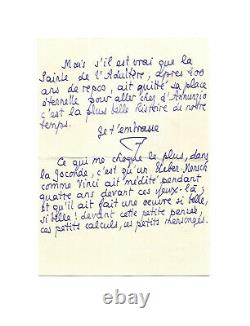 Mais s'il est vrai que la
Sainte de l'Adultère, après 400
ans de repos, ait quitté sa place
éternelle pour aller chez d'Annunzio
c'est la plus belle histoire de notre
temps.
Je t'embrasse
Ce qui me choque le plus, dans
la Joconde, c'est qu'un Ueber Mensch
comme Vinci ait médité pendant
quatre ans devant ces yeux-là ;
et qu'il ait fait une oeuvre si belle,
si belle ! devant cette petite pensée,
ces petits calculs, ces petits mensonges.